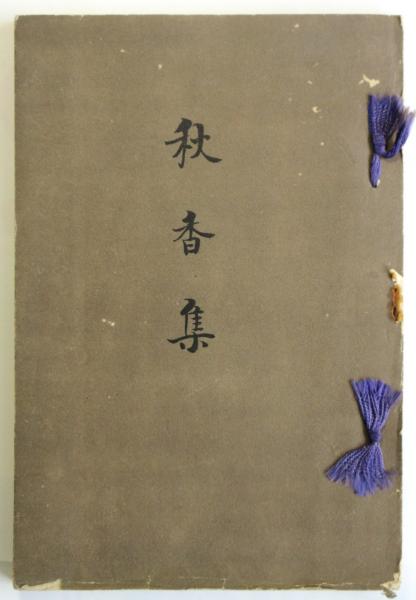 秋香集